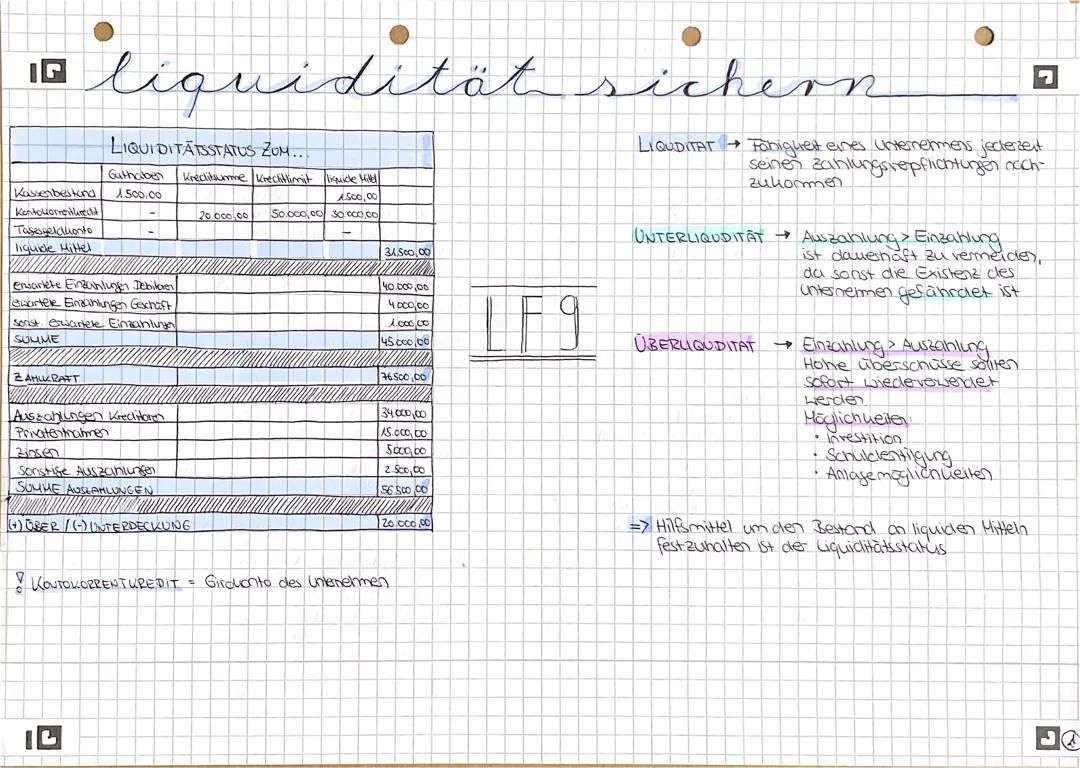 liquidität sichern
LIQUIDITÄTSSTATUS ZUM...
Guthaben Kreditsumme Kreditlimit liquide Mittel
Kassenbestand 1.500,00 1.500,00
Kontokorrentkredit - 20.000,00 50.000,00 30.000,00
Tagesgeldkonto - -
liquide Mittel 31.500,00
erwartete Einzahlungen Debitoren 40.000,00
erwartete Einzahlungen Geschäft 4.000,00
sonst. erwartete Einzahlungen 1.000,00
SUMME 45.000,00
ZAHLKRAFT 76.500,00
Auszahlungen Kreditoren 34.000,00
Privatentnahmen 15.000,00
Zinsen 5.000,00
sonstige Auszahlungen 2.500,00
SUMME AUSZAHLUNGEN 56.500,00
(+) ÜBER / (-) UNTERDECKUNG 20.000,00
! KONTOKORRENTKREDIT = Girokonto des Unternehmen
LF9
LIQUDITÄT → Fähigkeit eines Unternehmens jederzeit
seinen Zahlungsverpflichtungen nach-
zukommen
UNTERLIQUDITÄT → Auszahlung > Einzahlung
ist dauerhaft zu vermeiden,
da sonst die Existenz des
Unternehmen gefährdet ist
ÜBERLIQUDITÄT → Einzahlung > Auszahlung
Hohe Überschüsse sollten
sofort wiederverwendet
werden
Möglichkeiten:
• Investition
• Schuldentilgung
• Anlagemöglichkeiten
=> Hilfsmittel um den Bestand an liquiden Mitteln
festzuhalten ist der Liquiditätsstatus